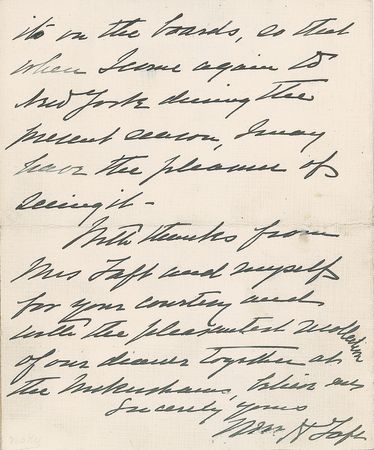 it's on the boards, so that
when I come again to
New York during the
present season, I may
have the pleasure of
seeing it -
With thanks from
Mrs Taft and myself
for your courtesy and
with the pleasantest recollection
of our dinner together at
the believe me
Sincerely yours
Wm H Taft